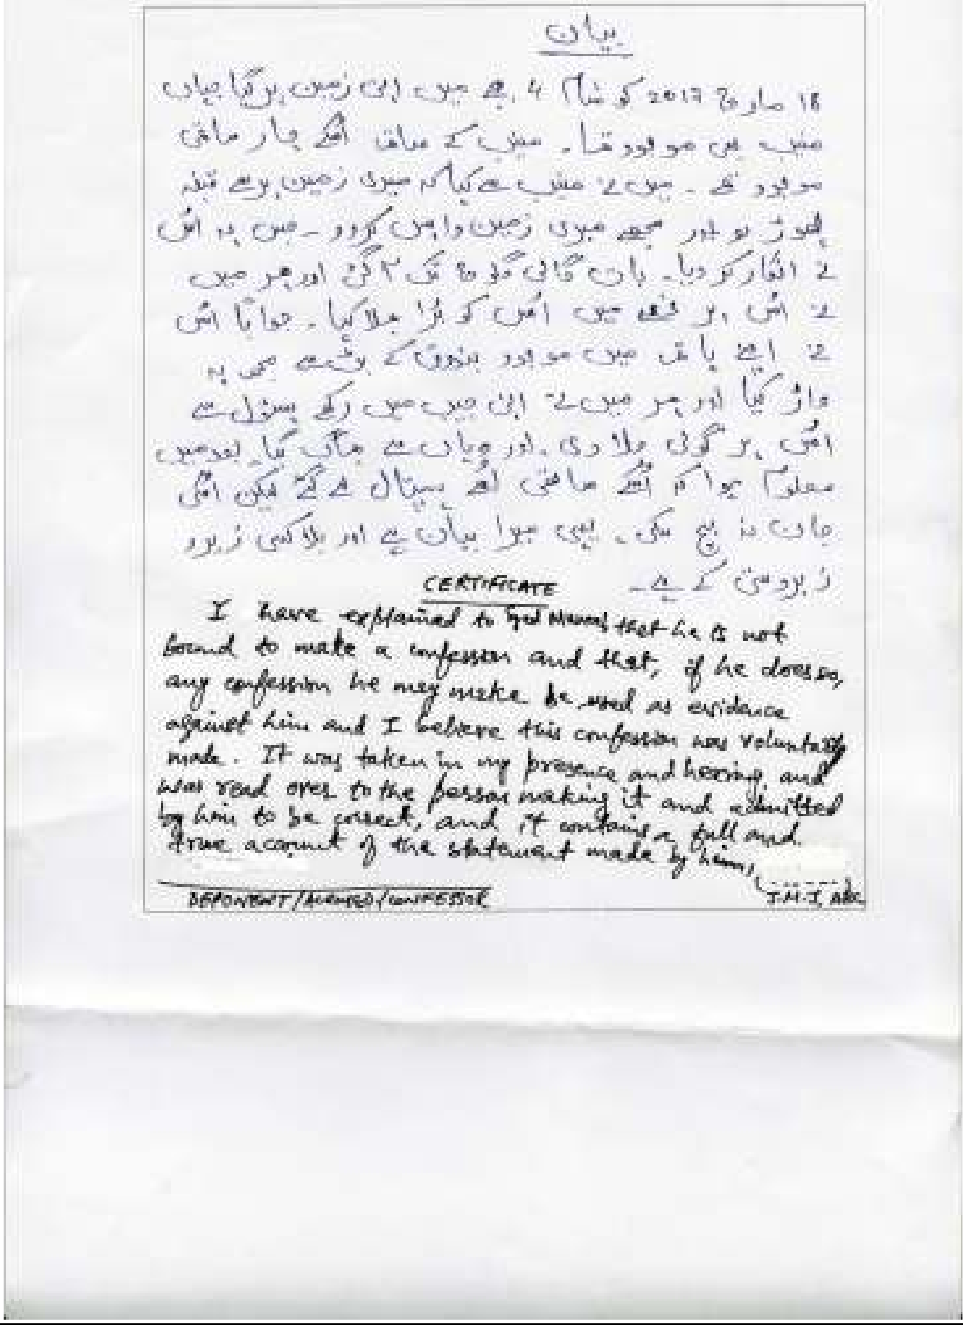 بیان
18 مارچ 2017 کو شام 4 بجے میں اپنی زمین پر گیا جہاں
منیب بھی موجود تھا۔ منیب کے ساتھ اسکے چار ساتھی
موجود تھے۔ میں نے منیب سے کہا کہ میری زمین پر سے قبضہ
چھوڑ دو اور مجھے میری زمین واپس کردو۔ جس پہ اس
نے انکار کر دیا۔ بات گالی گلوچ تک آ گئی اور پھر میں
نے اس پر غصے میں اس کو بُرا بھلا کہا۔ جواباً اُس
نے اپنے ہاتھ میں موجود بندوق کے بٹ سے مجھ پہ
وار کیا اور پھر میں نے اپنی جیب میں رکھے پستول سے
اُس پر گولی چلا دی اور وہاں سے بھاگ گیا۔ بعد میں
معلوم ہوا کہ اُسکے ساتھی اُسے ہسپتال لے گئے لیکن اُسکی
جان نہ بچ سکی۔ یہی میرا بیان ہے اور بلا کسی زور و
زبردستی کے ہے۔
CERTIFICATE
I have explained to Syed that he is not
bound to make a confession and that, if he does so,
any confession he may make be used as evidence
against him and I believe this confession was voluntarily
made. It was taken in my presence and hearing, and
was read over to the person making it and admitted
by him to be correct, and it contains a full and
true account of the statement made by him.
DEPONENT/ACCUSED/CONFESSOR
J.M.I, ABC